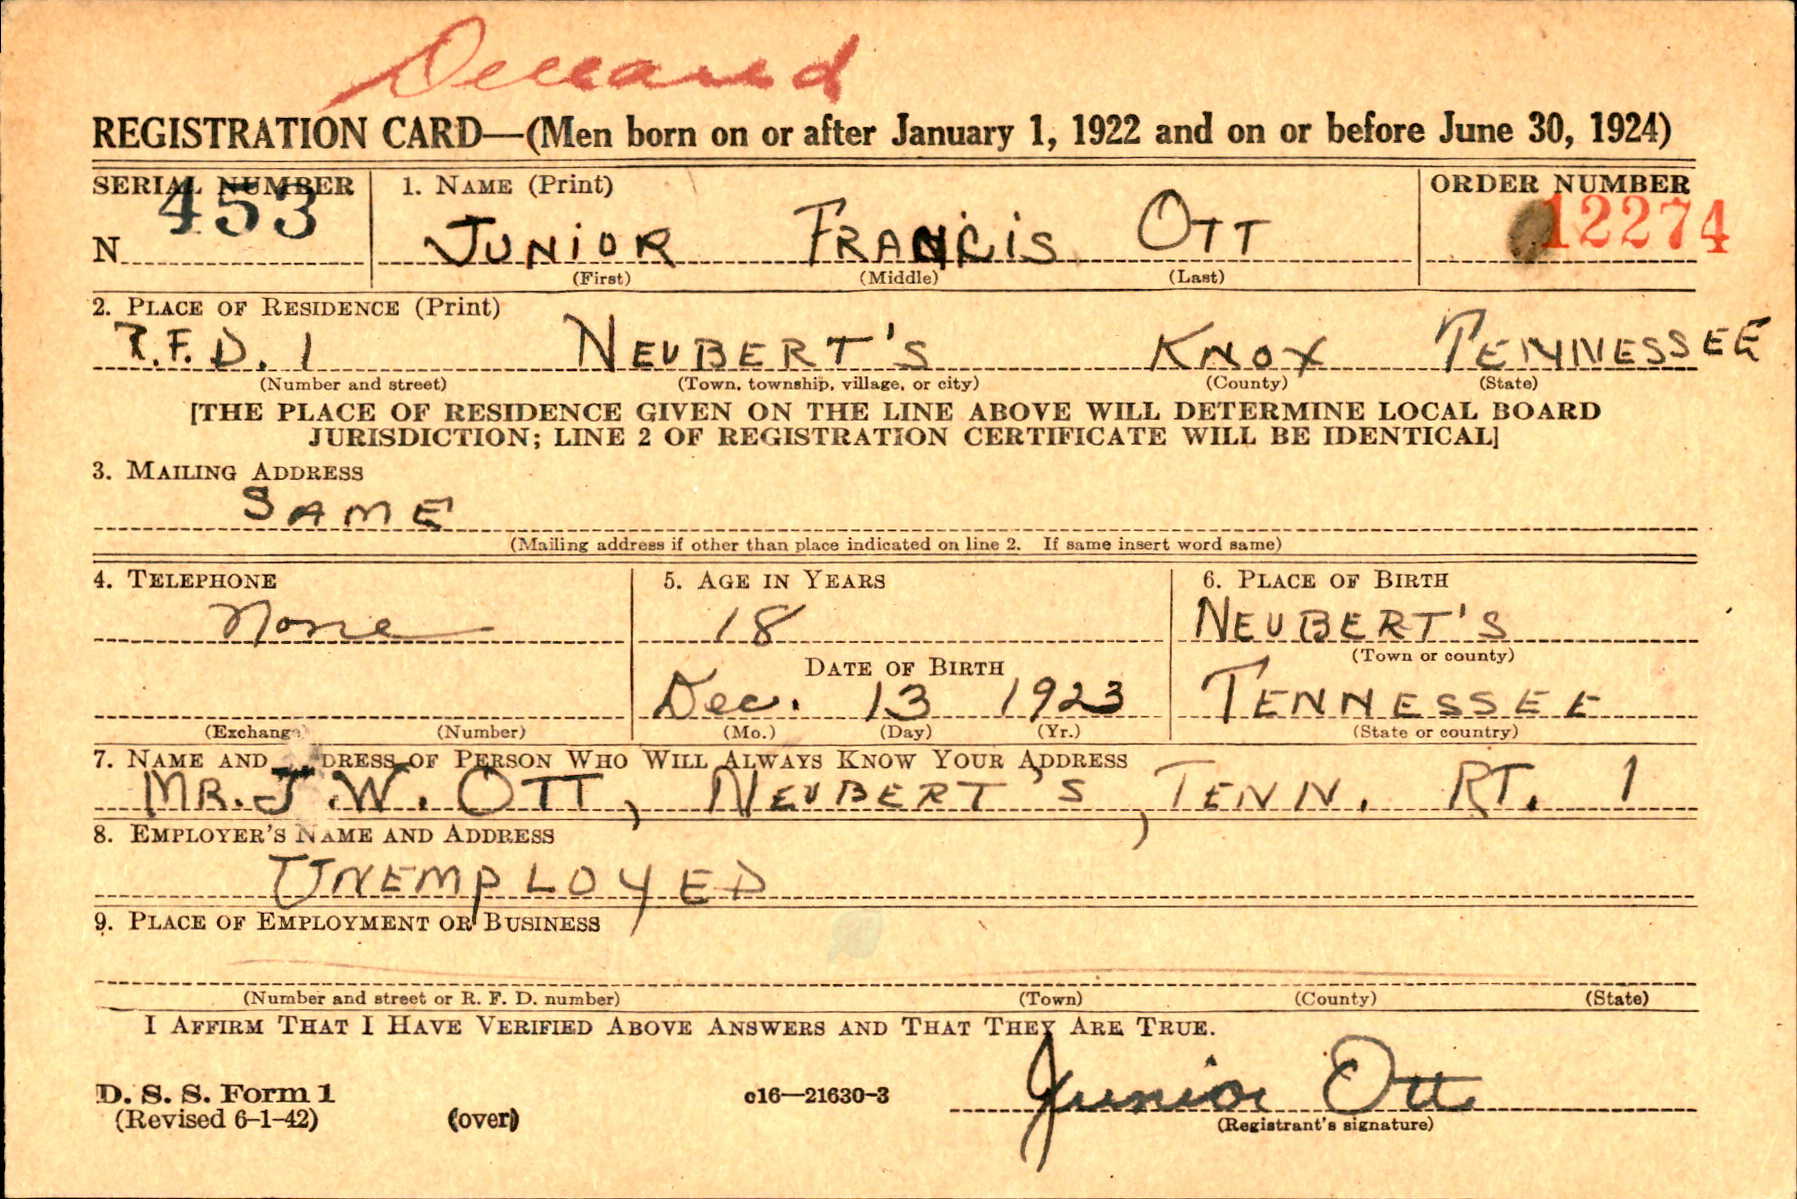 Deceased
REGISTRATION CARD—(Men born on or after January 1, 1922 and on or before June 30, 1924)
SERIAL NUMBER 1. NAME (Print) ORDER NUMBER
453 12274
N JUNIOR FRANCIS OTT
(First) (Middle) (Last)
2. PLACE OF RESIDENCE (Print)
R.F.D. 1 NEUBERT'S KNOX TENNESSEE
(Number and street) (Town, township, village, or city) (County) (State)
[THE PLACE OF RESIDENCE GIVEN ON THE LINE ABOVE WILL DETERMINE LOCAL BOARD
JURISDICTION; LINE 2 OF REGISTRATION CERTIFICATE WILL BE IDENTICAL]
3. MAILING ADDRESS
SAME
(Mailing address if other than place indicated on line 2. If same insert word same)
4. TELEPHONE 5. AGE IN YEARS 6. PLACE OF BIRTH
None 18 NEUBERT'S
DATE OF BIRTH (Town or county)
Dec. 13 1923 TENNESSEE
(Exchange) (Number) (Mo.) (Day) (Yr.) (State or country)
7. NAME AND ADDRESS OF PERSON WHO WILL ALWAYS KNOW YOUR ADDRESS
MR. J.W. OTT, NEUBERT'S, TENN. RT. 1
8. EMPLOYER'S NAME AND ADDRESS
UNEMPLOYED
9. PLACE OF EMPLOYMENT OR BUSINESS
(Number and street or R. F. D. number) (Town) (County) (State)
I AFFIRM THAT I HAVE VERIFIED ABOVE ANSWERS AND THAT THEY ARE TRUE.
Junior Ott
D. S. S. Form 1 c16—21630-3
(Revised 6-1-42) (over) (Registrant's signature)